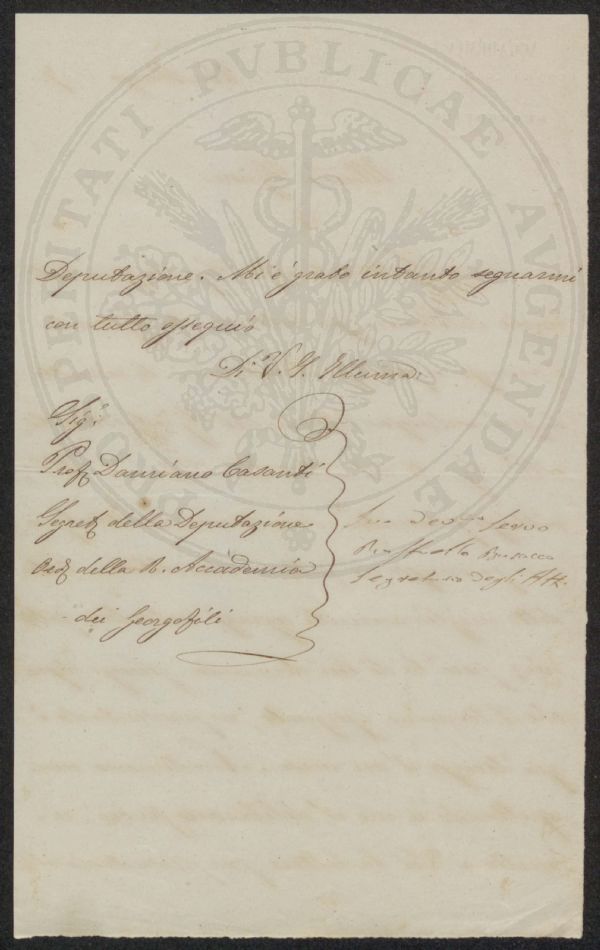 PROSPERITATI PVBLICAE AVGENDAE
Deputazione. Mi è grato intanto segnarmi
con tutto ossequio
Di V. S. Illuma:
Sigr:
Prof. Damiano Casanti
Segret. della Deputazione
Ord. della R. Accademia
dei Georgofili
Suo Devmo Servo
Raffaello Busacca
Segretario degli Atti.